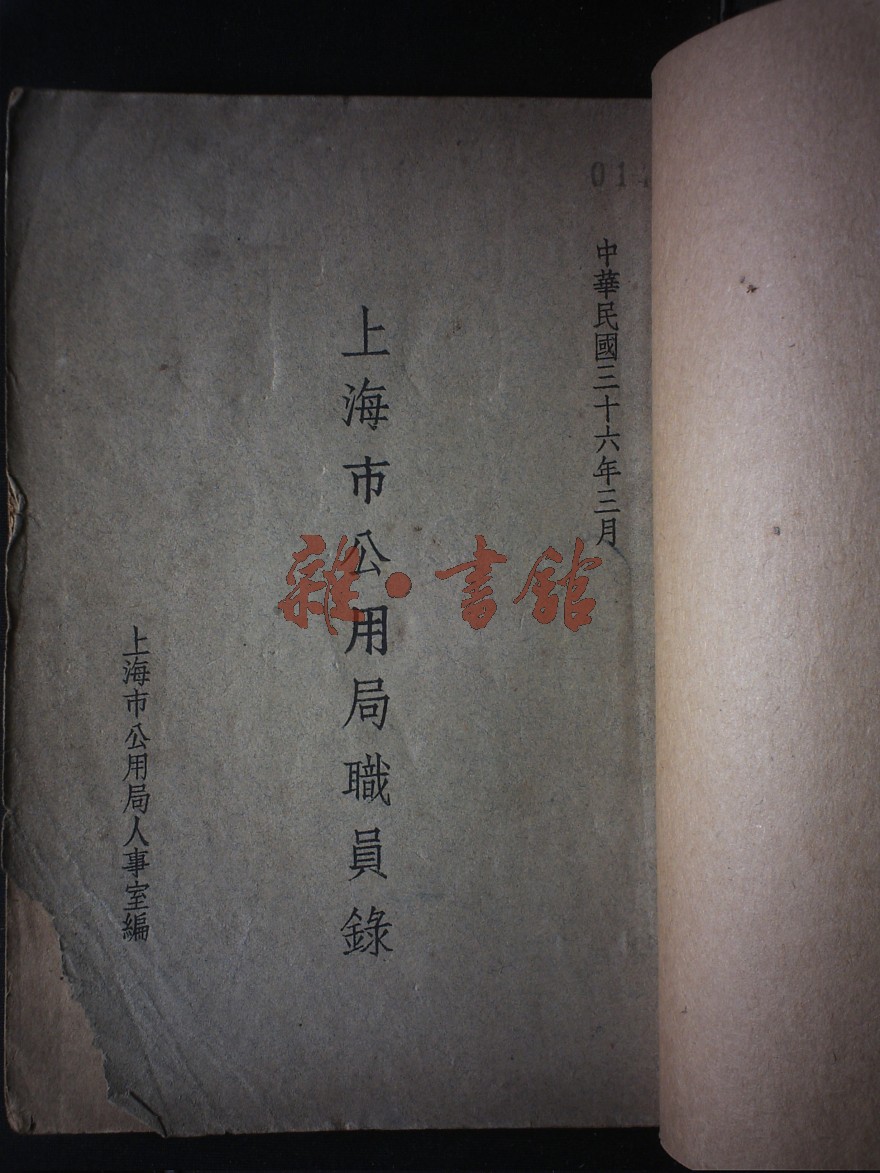 中華民國三十六年三月
上海市公用局職員錄
上海市公用局人事室編
雜·書館